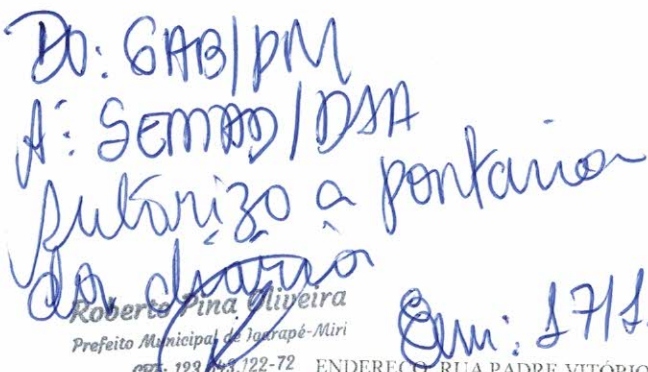 DO: GAB/PM
À: SEMAD/DSA
Autorizo a portaria
da diária
Roberto Pina Oliveira
Prefeito Municipal de Igarapé-Miri
122-72 ENDEREÇO: RUA PADRE VITÓRIO
Em: 17/1